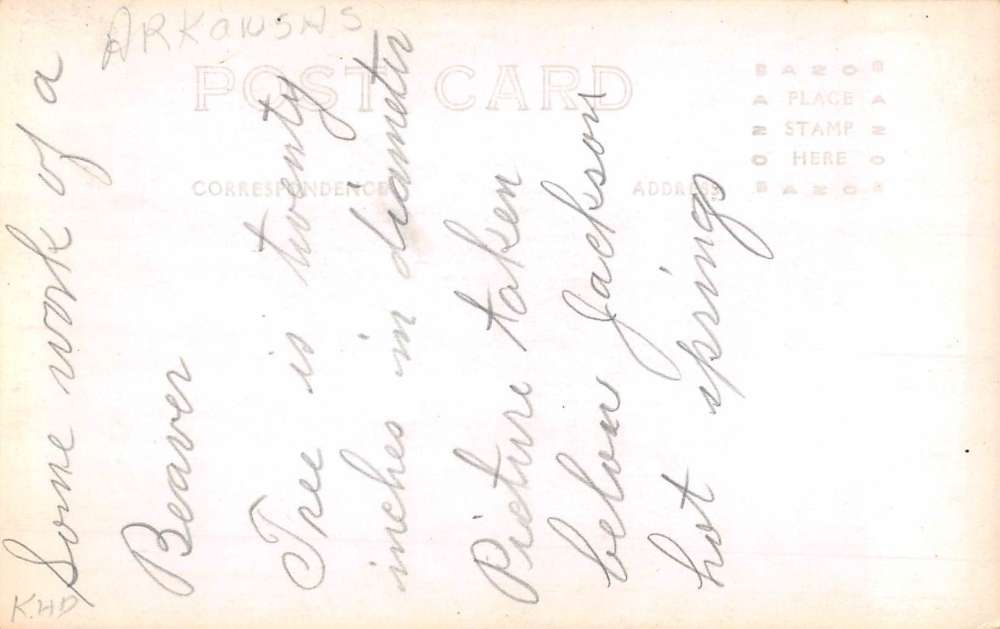 ARKANSAS
POST CARD
CORRESPONDENCE
ADDRESS
BAZOB
A PLACE A
Z STAMP Z
O HERE O
BAZOB
Some work of a
Beaver
Tree is twenty
inches in diameter
Picture taken
below Jackson
hot springs
KHD